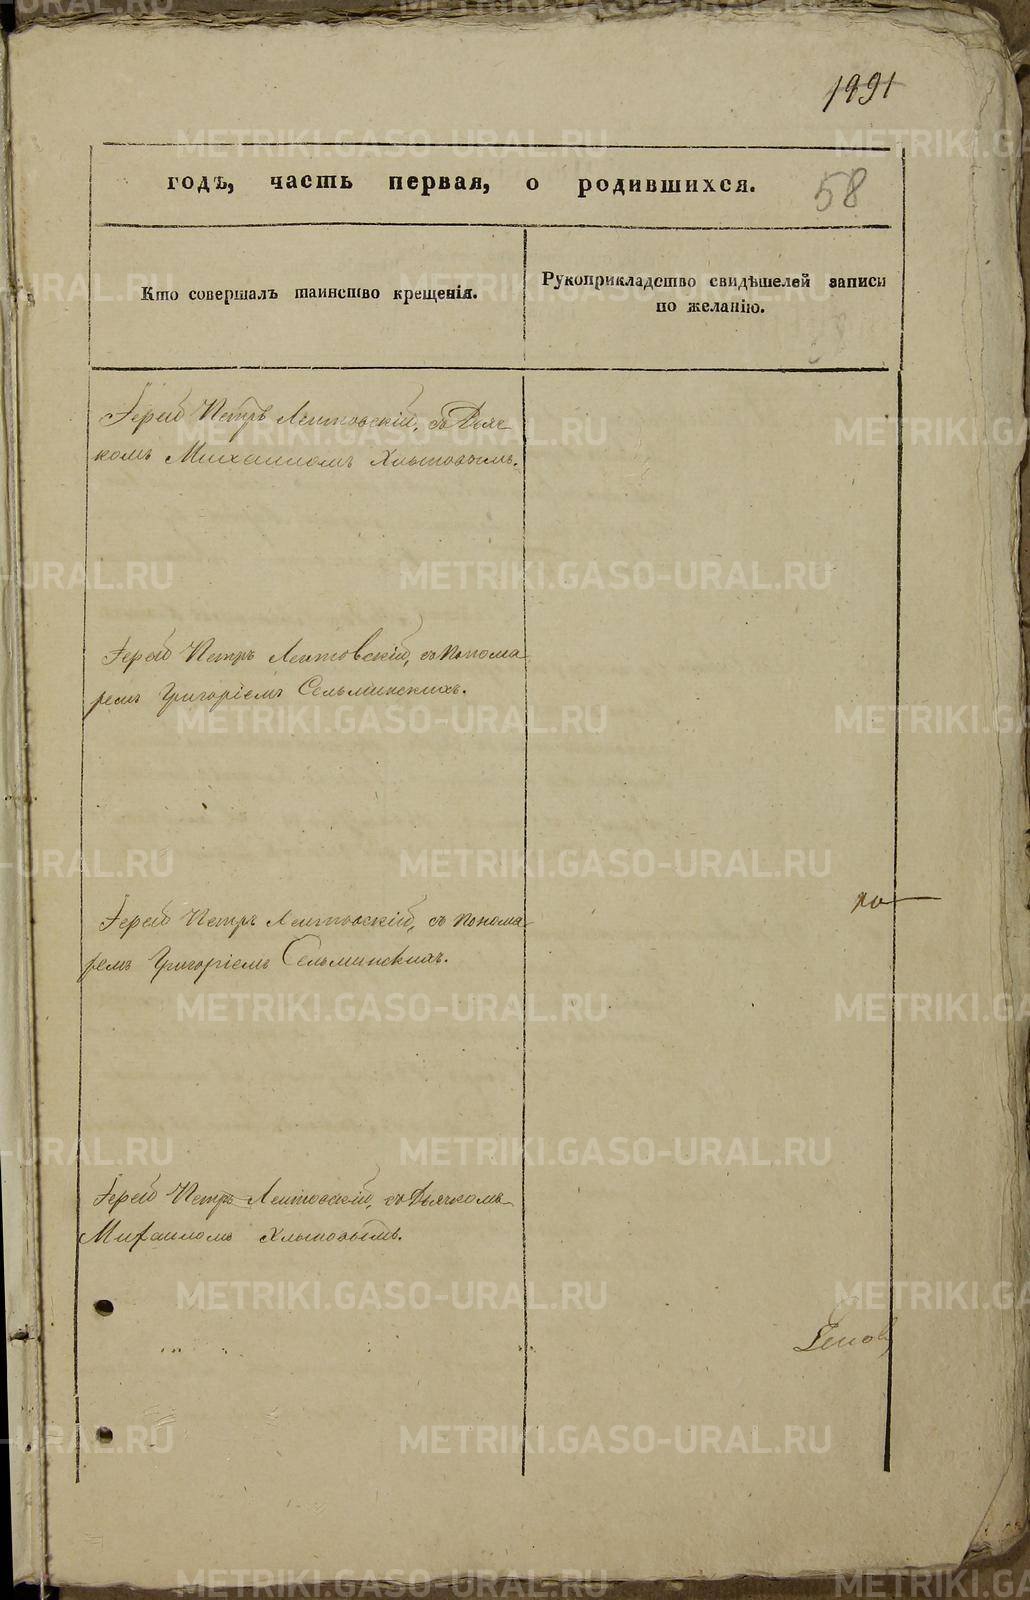 1991
годъ, часть первая, о родившихся.
58
Кто совершалъ таинство крещенія.
Рукоприкладство свидѣтелей записи
по желанію.
Іерей Петръ Лептовскій, съ Дьяч
комъ Михаиломъ Хлыновымъ.
Іерей Петръ Лептовскій, съ Понома
ремъ Григоріемъ Сельминскихъ.
Іерей Петръ Лептовскій, съ Понома
ремъ Григоріемъ Сельминскихъ.
по
Іерей Петръ Лептовскій, съ Дьячкомъ
Михаиломъ Хлыновымъ.
METRIKI.GASO-URAL.RU